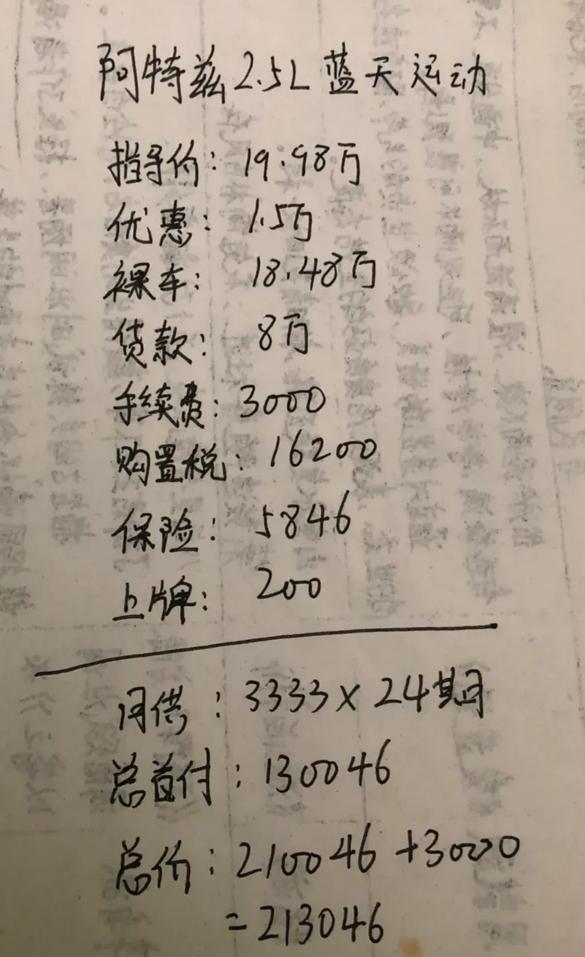 阿特兹2.5L 蓝天运动
指导价：19.98万
优惠：1.5万
裸车：18.48万
贷款：8万
手续费：3000
购置税：16200
保险：5846
上牌：200
月供：3333×24期
总首付：130046
总价：210046+3000
=213046